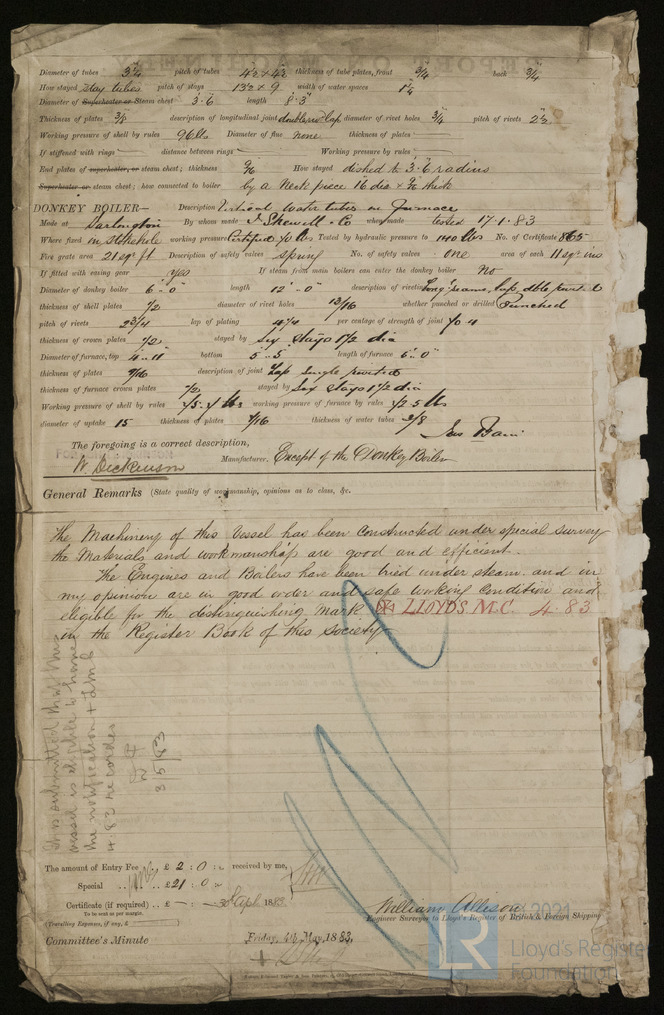 Diameter of tubes 3¼ pitch of tubes 4½ x 4½ thickness of tube plates, front ¾ back ¾
How stayed Stay tubes pitch of stays 13½ x 9 width of water spaces 1¼
Diameter of Superheater or Steam chest 3'.6 length 8'.3"
Thickness of plates ¾ description of longitudinal joint double riv Lap diameter of rivet holes ¾ pitch of rivets 2½
Working pressure of shell by rules 96 lbs Diameter of flue none thickness of plates
If stiffened with rings distance between rings Working pressure by rules
End plates of superheater, or steam chest; thickness How stayed dished to 3'.6 radius
Superheater or steam chest; how connected to boiler by a Neck piece 16 dia x thick
DONKEY BOILER— Description Vertical water tubes in furnace
Made at Darlington By whom made when made tested 17.1.83
Where fixed in Stokehole working pressure Certified 70 lbs Tested by hydraulic pressure to 140 lbs No. of Certificate 865
Fire grate area 21 sqr ft Description of safety valves Spring No. of safety valves one area of each 11 sqr ins
If fitted with easing gear yes If steam from main boilers can enter the donkey boiler No
Diameter of donkey boiler 6'.0" length 12'.0" description of rivets Long seams, Lap, dble riveted
thickness of shell plates 1/2 diameter of rivet holes 13/16 whether punched or drilled Punched
pitch of rivets 2 3/4 lap of plating 4 1/4 per centage of strength of joint 70.4
thickness of crown plates 1/2 stayed by Six Stays 1 1/2 dia
Diameter of furnace, top 4'.11" bottom 5'.5" length of furnace 6'.0"
thickness of plates 9/16 description of joint Lap single riveted
thickness of furnace crown plates 1/2 stayed by Six Stays 1 1/2 dia
Working pressure of shell by rules lbs working pressure of furnace by rules lbs
diameter of uptake 15 thickness of plates 7/16 thickness of water tubes 3/8
The foregoing is a correct description,
W. Dickinson Manufacturer. Except of the Donkey Boiler
General Remarks (State quality of workmanship, opinions as to class, &c.
The Machinery of this Vessel has been constructed under special survey
the Materials and workmanship are good and efficient.
The Engines and Boilers have been tried under steam and in
my opinion are in good order and safe working condition and
eligible for the distinguishing Mark LLOYDS M.C. 4.83
in the Register Book of this Society
It is submitted that this
vessel is eligible to have
the notification + LMC
4.83 recorded
3/5/83
The amount of Entry Fee £ 2 : 0 : received by me,
Special .. £ 21 : 0 :
Certificate (if required) .. £ 30 Apl. 1883
To be sent as per margin.
(Travelling Expenses, if any, £ )
William Allison
Engineer Surveyor to Lloyd's Register of British & Foreign Shipping
Committee's Minute Friday, 4th May, 1883.
2021
LR
Lloyd's Register
Foundation